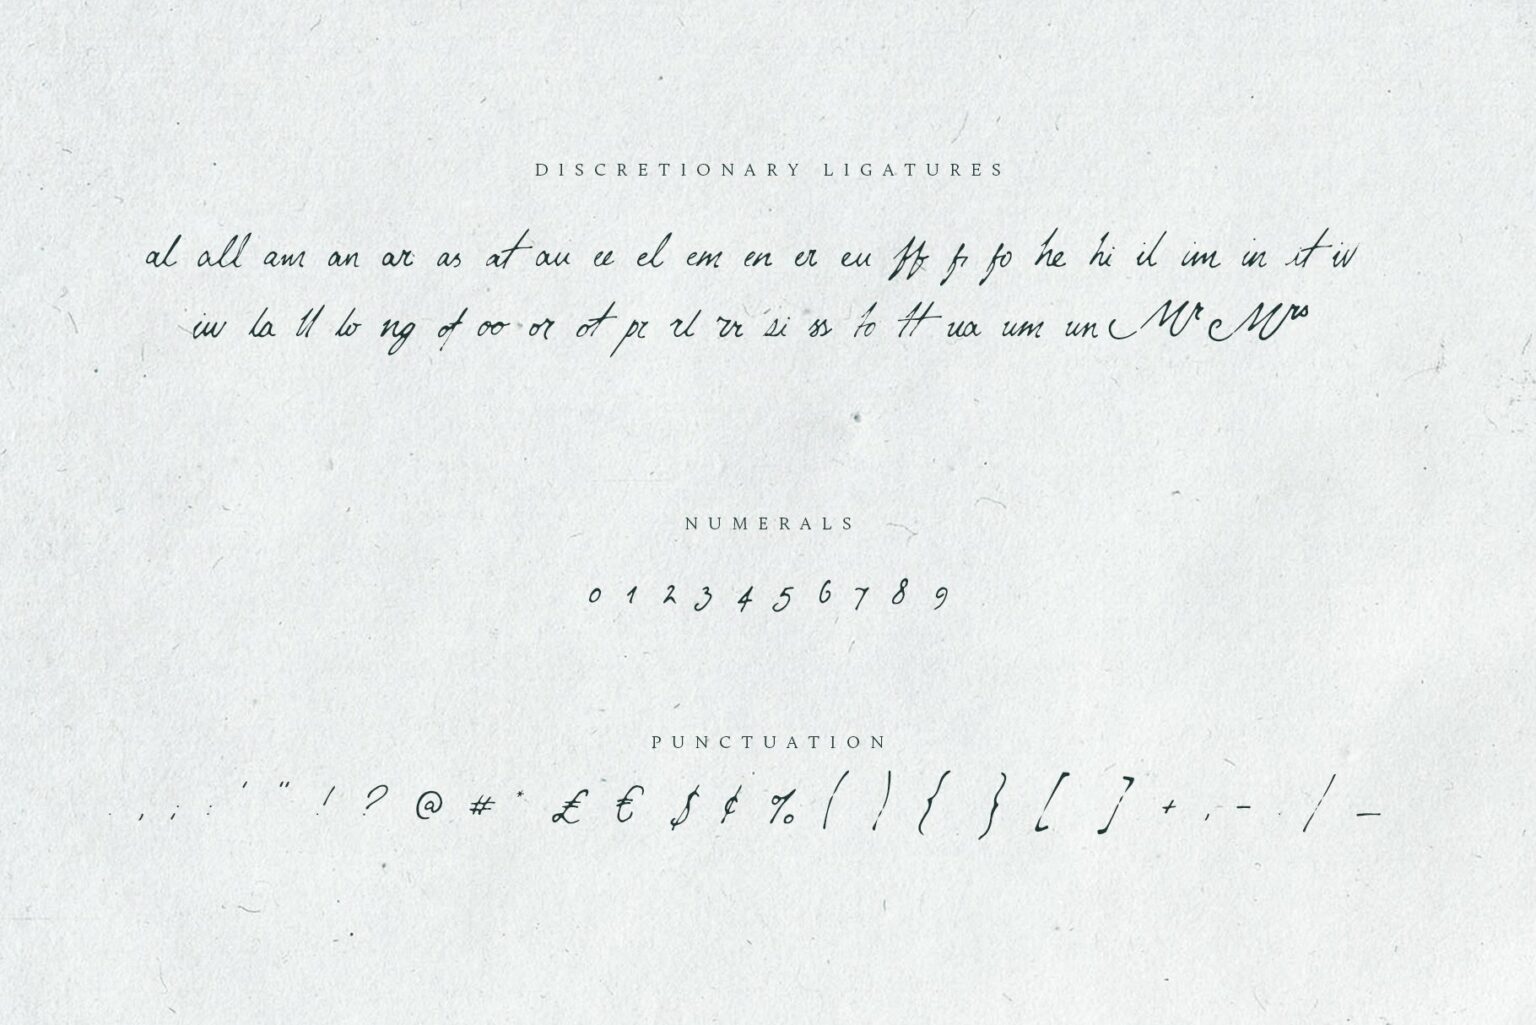 DISCRETIONARY LIGATURES
al all am an ar as at au ee el em en er eu ff fi fo he hi il im in it iv
iw la ll lo ng of oo or ot pr rl rr si ss to tt ua um un Mr Mrs
NUMERALS
0 1 2 3 4 5 6 7 8 9
PUNCTUATION
. , ; : ' " ! ? @ # * £ € $ ¢ % ( ) { } [ ] + , - . / _